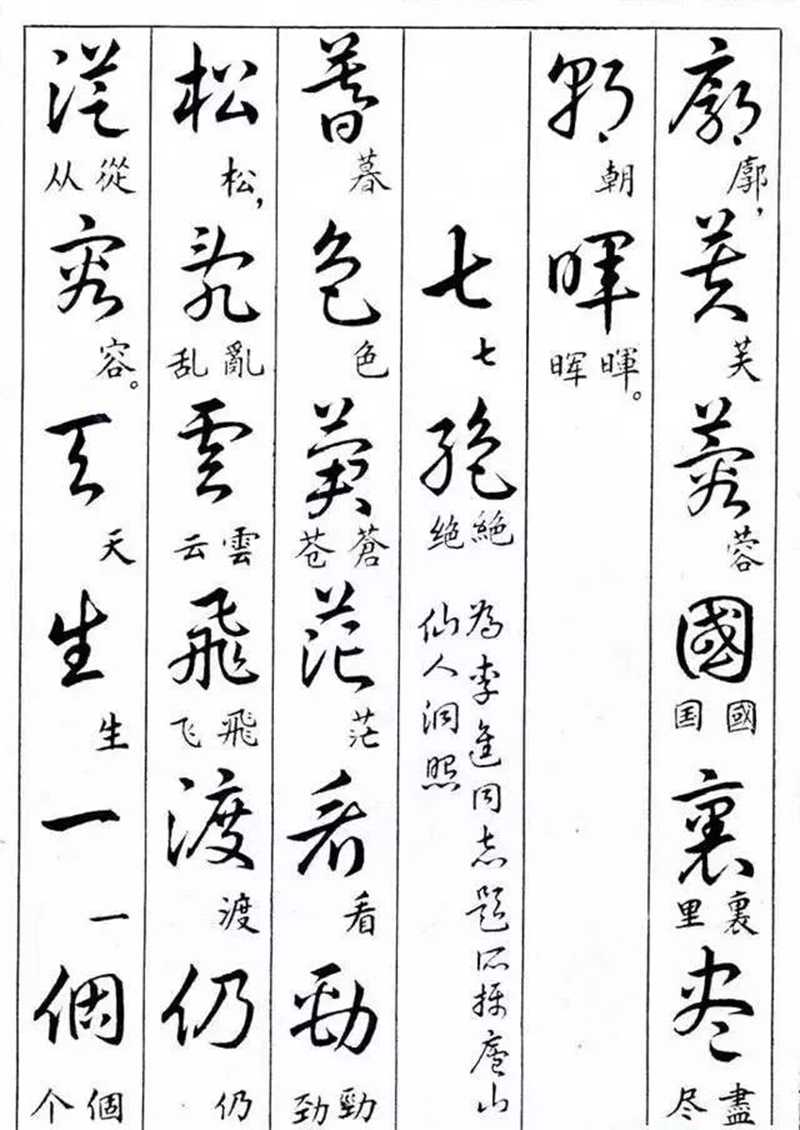 廓 廓， 芙 芙 蓉 蓉 國 國 国 裏 裏 里 尽 盡 尽
朝 朝 暉 暉 晖。
七 七 絶 絶 绝
為李進同志题所摄庐山
仙人洞照
暮 暮 色 色 蒼 蒼 苍 茫 茫 看 看 勁 勁 劲
松 松， 乱 亂 乱 雲 雲 云 飛 飛 飞 渡 渡 仍 仍
從 從 从 容 容。 天 天 生 生 一 一 個 個 个